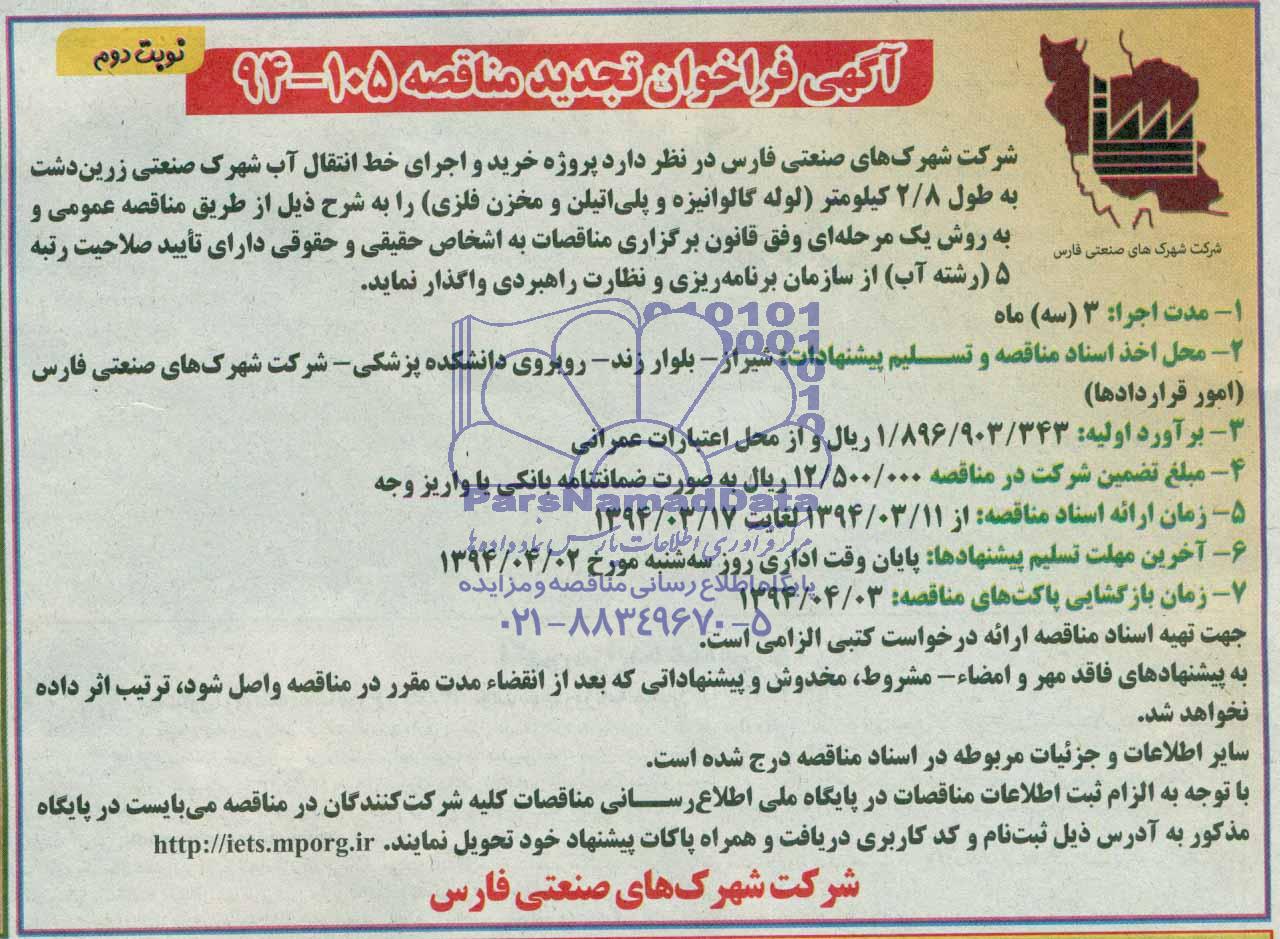 نوبت دوم
آگهی فراخوان تجدید مناقصه ۱۰۵-۹۴
شرکت شهرک های صنعتی فارس
شرکت شهرک‌های صنعتی فارس در نظر دارد پروژه خرید و اجرای خط انتقال آب شهرک صنعتی زرین‌دشت
به طول ۲/۸ کیلومتر (لوله گالوانیزه و پلی‌اتیلن و مخزن فلزی) را به شرح ذیل از طریق مناقصه عمومی و
به روش یک مرحله‌ای وفق قانون برگزاری مناقصات به اشخاص حقیقی و حقوقی دارای تأیید صلاحیت رتبه
۵ (رشته آب) از سازمان برنامه‌ریزی و نظارت راهبردی واگذار نماید.
۱- مدت اجرا: ۳ (سه) ماه
۲- محل اخذ اسناد مناقصه و تسلیم پیشنهادات: شیراز - بلوار زند - روبروی دانشکده پزشکی - شرکت شهرک‌های صنعتی فارس
(امور قراردادها)
۳- برآورد اولیه: ۱/۸۹۶/۹۰۳/۳۴۳ ریال و از محل اعتبارات عمرانی
۴- مبلغ تضمین شرکت در مناقصه ۱۲/۵۰۰/۰۰۰ ریال به صورت ضمانتنامه بانکی یا واریز وجه
۵- زمان ارائه اسناد مناقصه: از ۱۳۹۴/۰۳/۱۱ لغایت ۱۳۹۴/۰۳/۱۷
۶- آخرین مهلت تسلیم پیشنهادها: پایان وقت اداری روز سه‌شنبه مورخ ۱۳۹۴/۰۴/۰۲
۷- زمان بازگشایی پاکت‌های مناقصه: ۱۳۹۴/۰۴/۰۳
جهت تهیه اسناد مناقصه ارائه درخواست کتبی الزامی است.
به پیشنهادهای فاقد مهر و امضاء - مشروط، مخدوش و پیشنهاداتی که بعد از انقضاء مدت مقرر در مناقصه واصل شود، ترتیب اثر داده
نخواهد شد.
سایر اطلاعات و جزئیات مربوطه در اسناد مناقصه درج شده است.
با توجه به الزام ثبت اطلاعات مناقصات در پایگاه ملی اطلاع‌رسانی مناقصات کلیه شرکت‌کنندگان در مناقصه می‌بایست در پایگاه
مذکور به آدرس ذیل ثبت‌نام و کد کاربری دریافت و همراه پاکات پیشنهاد خود تحویل نمایند. http://iets.mporg.ir
شرکت شهرک‌های صنعتی فارس
ParsNamadData
مرکز فرآوری اطلاعات پارس نماد داده‌ها
پایگاه اطلاع رسانی مناقصه و مزایده
۰۲۱-۸۸۳۴۹۶۷۰-۵